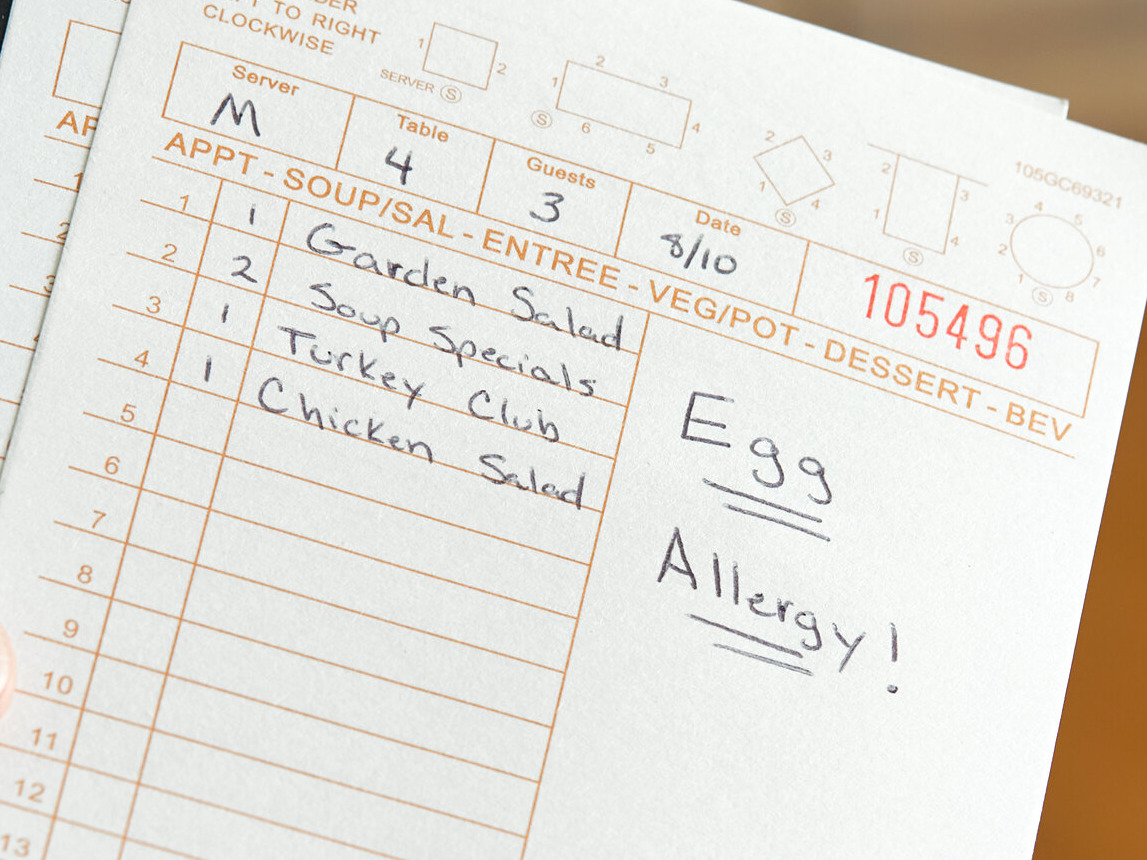 TO RIGHT
CLOCKWISE
1
2
SERVER S
1
2
3
4
5
6
S
1
2
3
4
S
1
2
3
4
S
105GC69321
1
2
3
4
5
6
7
8
S
Server
M
Table
4
Guests
3
Date
8/10
105496
APPT - SOUP/SAL - ENTREE - VEG/POT - DESSERT - BEV
1 1 Garden Salad
2 2 Soup Specials
3 1 Turkey Club
4 1 Chicken Salad
5
6
7
8
9
10
11
12
13
Egg
Allergy!